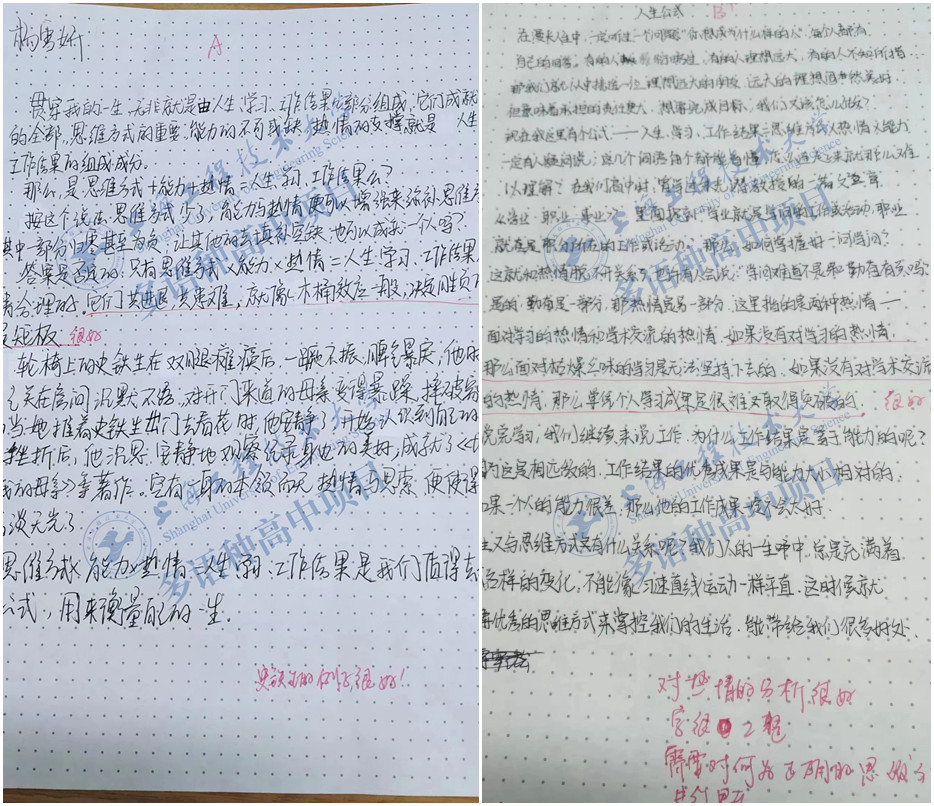 杨雪妍
A
贯穿我的一生,无非就是由人生、学习、工作结果三部分组成,它们成就
的全部,思维方式的重要,能力的不可或缺,热情的支撑就是 人生
工作结果的组成成分。
那么,是思维方式+能力+热情=人生,学习,工作结果么?
按这个说法,思维方式少了,能力与热情便可以增强来弥补思维方
其中一部分归零甚至为负,让其他的去填补空缺,也可以成就一个人吗?
答案是否定的,只有思维方式×能力×热情=人生学习、工作结果
合理的,它们共进退,共患难,就像木桶效应一般,决定性负
短板 很好
轮椅上的史铁生在双腿瘫痪后,一蹶不振,脾气暴戾,他
关在房间,沉默不语,对开门来道的母亲变得暴躁,摔
当她推着史铁生出门去看花时,他安静了,开始认识到自己的
挫折后,他沉思,安静地观察记录身边的美好,成就了
我的母亲》等著作。空有一身的本领而无热情与思索,便使得
淡无光了
思维方式×能力×热情=人生、学习、工作结果是我们值得去
公式,用来衡量自己的一生。
史铁生的例子,很好!
人生公式
B+
在漫长人生中,一定听过一个问题“你想成为什么样的人”,每个人都有
自己的回答。有的人 有的人理想远大,有的人不知所措
远大的理想固然美好,
但意味着承担的责任更大,想要达成目标,我们又该怎么做?
现在我这里有个公式——人生、学习、工作结果=思维方式×热情×能力
一定有人疑问说:这几个词语每个都能看懂,怎么连起来就那么又难
以理解?在我们高中时,曾写过朱光潜教授的一篇文章
《学业·职业·事业》,里面提到“学业就是学问的工作或活动,职业
就是职分所在的工作或活动。”那么,如何掌握好一门学问?
这就和热情脱不开关系,也许有人会说:“学问难道不是和勤奋有关吗?
是的,勤奋是一部分,那热情是另一部分,这里指的是两种热情——
面对学习的热情和学术交流的热情,如果没有对学习的热情,
那么面对枯燥乏味的学习是无法坚持下去的,如果没有对学术交流
的热情,那么单凭个人学习成果是很难又取得突破的。 很好
说完学习,我们继续来说工作,为什么工作结果是等于能力的呢?
因为这是相匹级的,工作结果的优秀成果是与能力大小相对的,
如果一个人的能力很差,那么他的工作成果一定不会太好。
生又与思维方式又有什么关系呢?我们人的一生中,总是充满着
各样的变化,不能像匀速直线运动一样平直,这时候就
需优秀的思维方式来掌控我们的生活,能带给我们很多好处、
对热情的分析很好
字很 2 
需要对何为正确的思维方
进行
上海工程技术大学
Shanghai University of Engineering Science
多语种高中项目